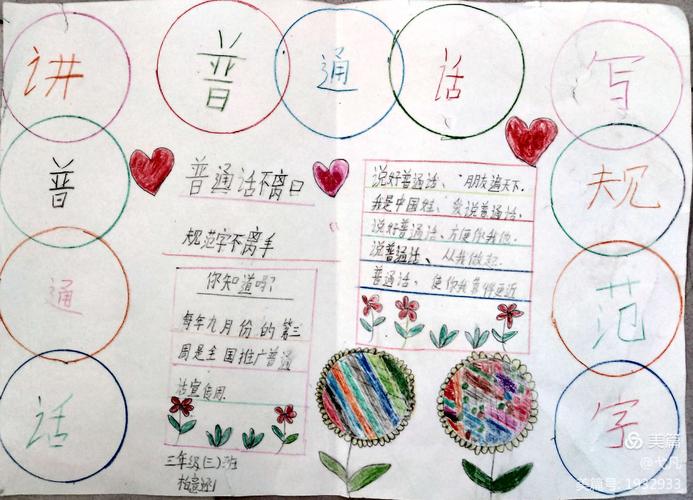 讲普通话
写规范字
普通话
普通话不离口
规范字不离手
你知道吗?
每年九月份的第三
周是全国推广普通
话宣传周.
三年级(三)班
说好普通话、朋友遍天下.
我是中国娃、我说普通话.
说好普通话、方便你我他.
说普通话、从我做起.
普通话、使你我靠得更近
美篇
@弋凡
美篇号: 1932933